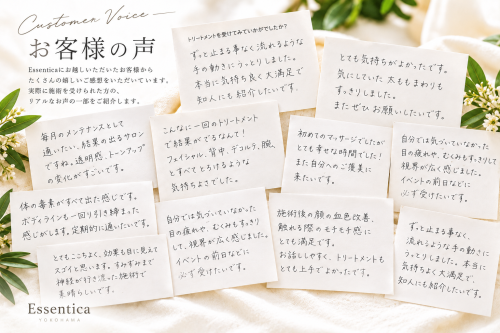 Customer Voice
お客様の声
Essenticaにお越しいただいたお客様から
たくさんの嬉しいご感想をいただいています。
実際に施術を受けられた方の、
リアルなお声の一部をご紹介します。
トリートメントを受けてみていかがでしたか?
ずっと止まる事なく流れるような
手の動きにうっとりしました。
本当に気持ち良く大満足で
知人にも紹介したいです。
とても気持ちがよかったです。
気にしていた太ももまわりも
すっきりしました。
またぜひお願いしたいです。
毎月のメンテナンスとして
通いたい、結果の出るサロン
ですね。透明感、トーンアップ
の変化がすごいです。
こんなに一回のトリートメント
で結果がでるなんて!
フェイシャル、背中、デコルテ、腕、
とすべてとろけるような
気持ちよさでした。
初めてのマッサージでしたが
とても幸せな時間でした!
また自分へのご褒美に
来たいです。
自分では気づいていなかった
目の疲れや、むくみもすっきりして
視界が広く感じました。
イベントの前日などに
必ず受けたいです。
体の毒素がすべて出た感じです。
ボディラインも一回り引き締まった
感じがします。定期的に通いたいです。
自分では気づいていなかった
目の疲れや、むくみもすっきり
して、視界が広く感じました。
イベントの前日などに
必ず受けたいです。
施術後の顔の血色改善、
触れる際のモチモチ感に
とても満足です。
お話ししやすく、トリートメントも
とても上手でよかったです。
ずっと止まる事なく、
流れるような手の動きに
うっとりしました。本当に
気持ちよく大満足で、
知人にも紹介したいです。
とてもここちよく、効果も目に見えて
スゴイと思います。すみずみまで
神経が行き渡った施術で
素晴らしいです。
Essentica
YOKOHAMA